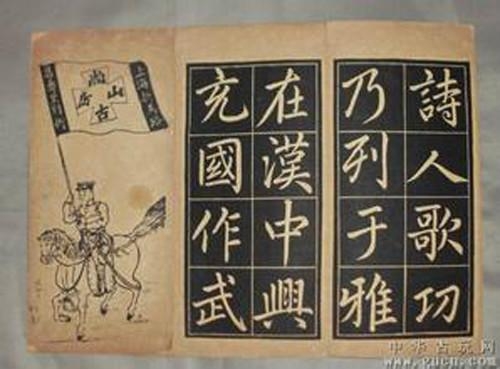 詩人歌功
乃列于雅
在漢中興
充國作武
尚古山房
上海
中华古玩网
www.gucn.com